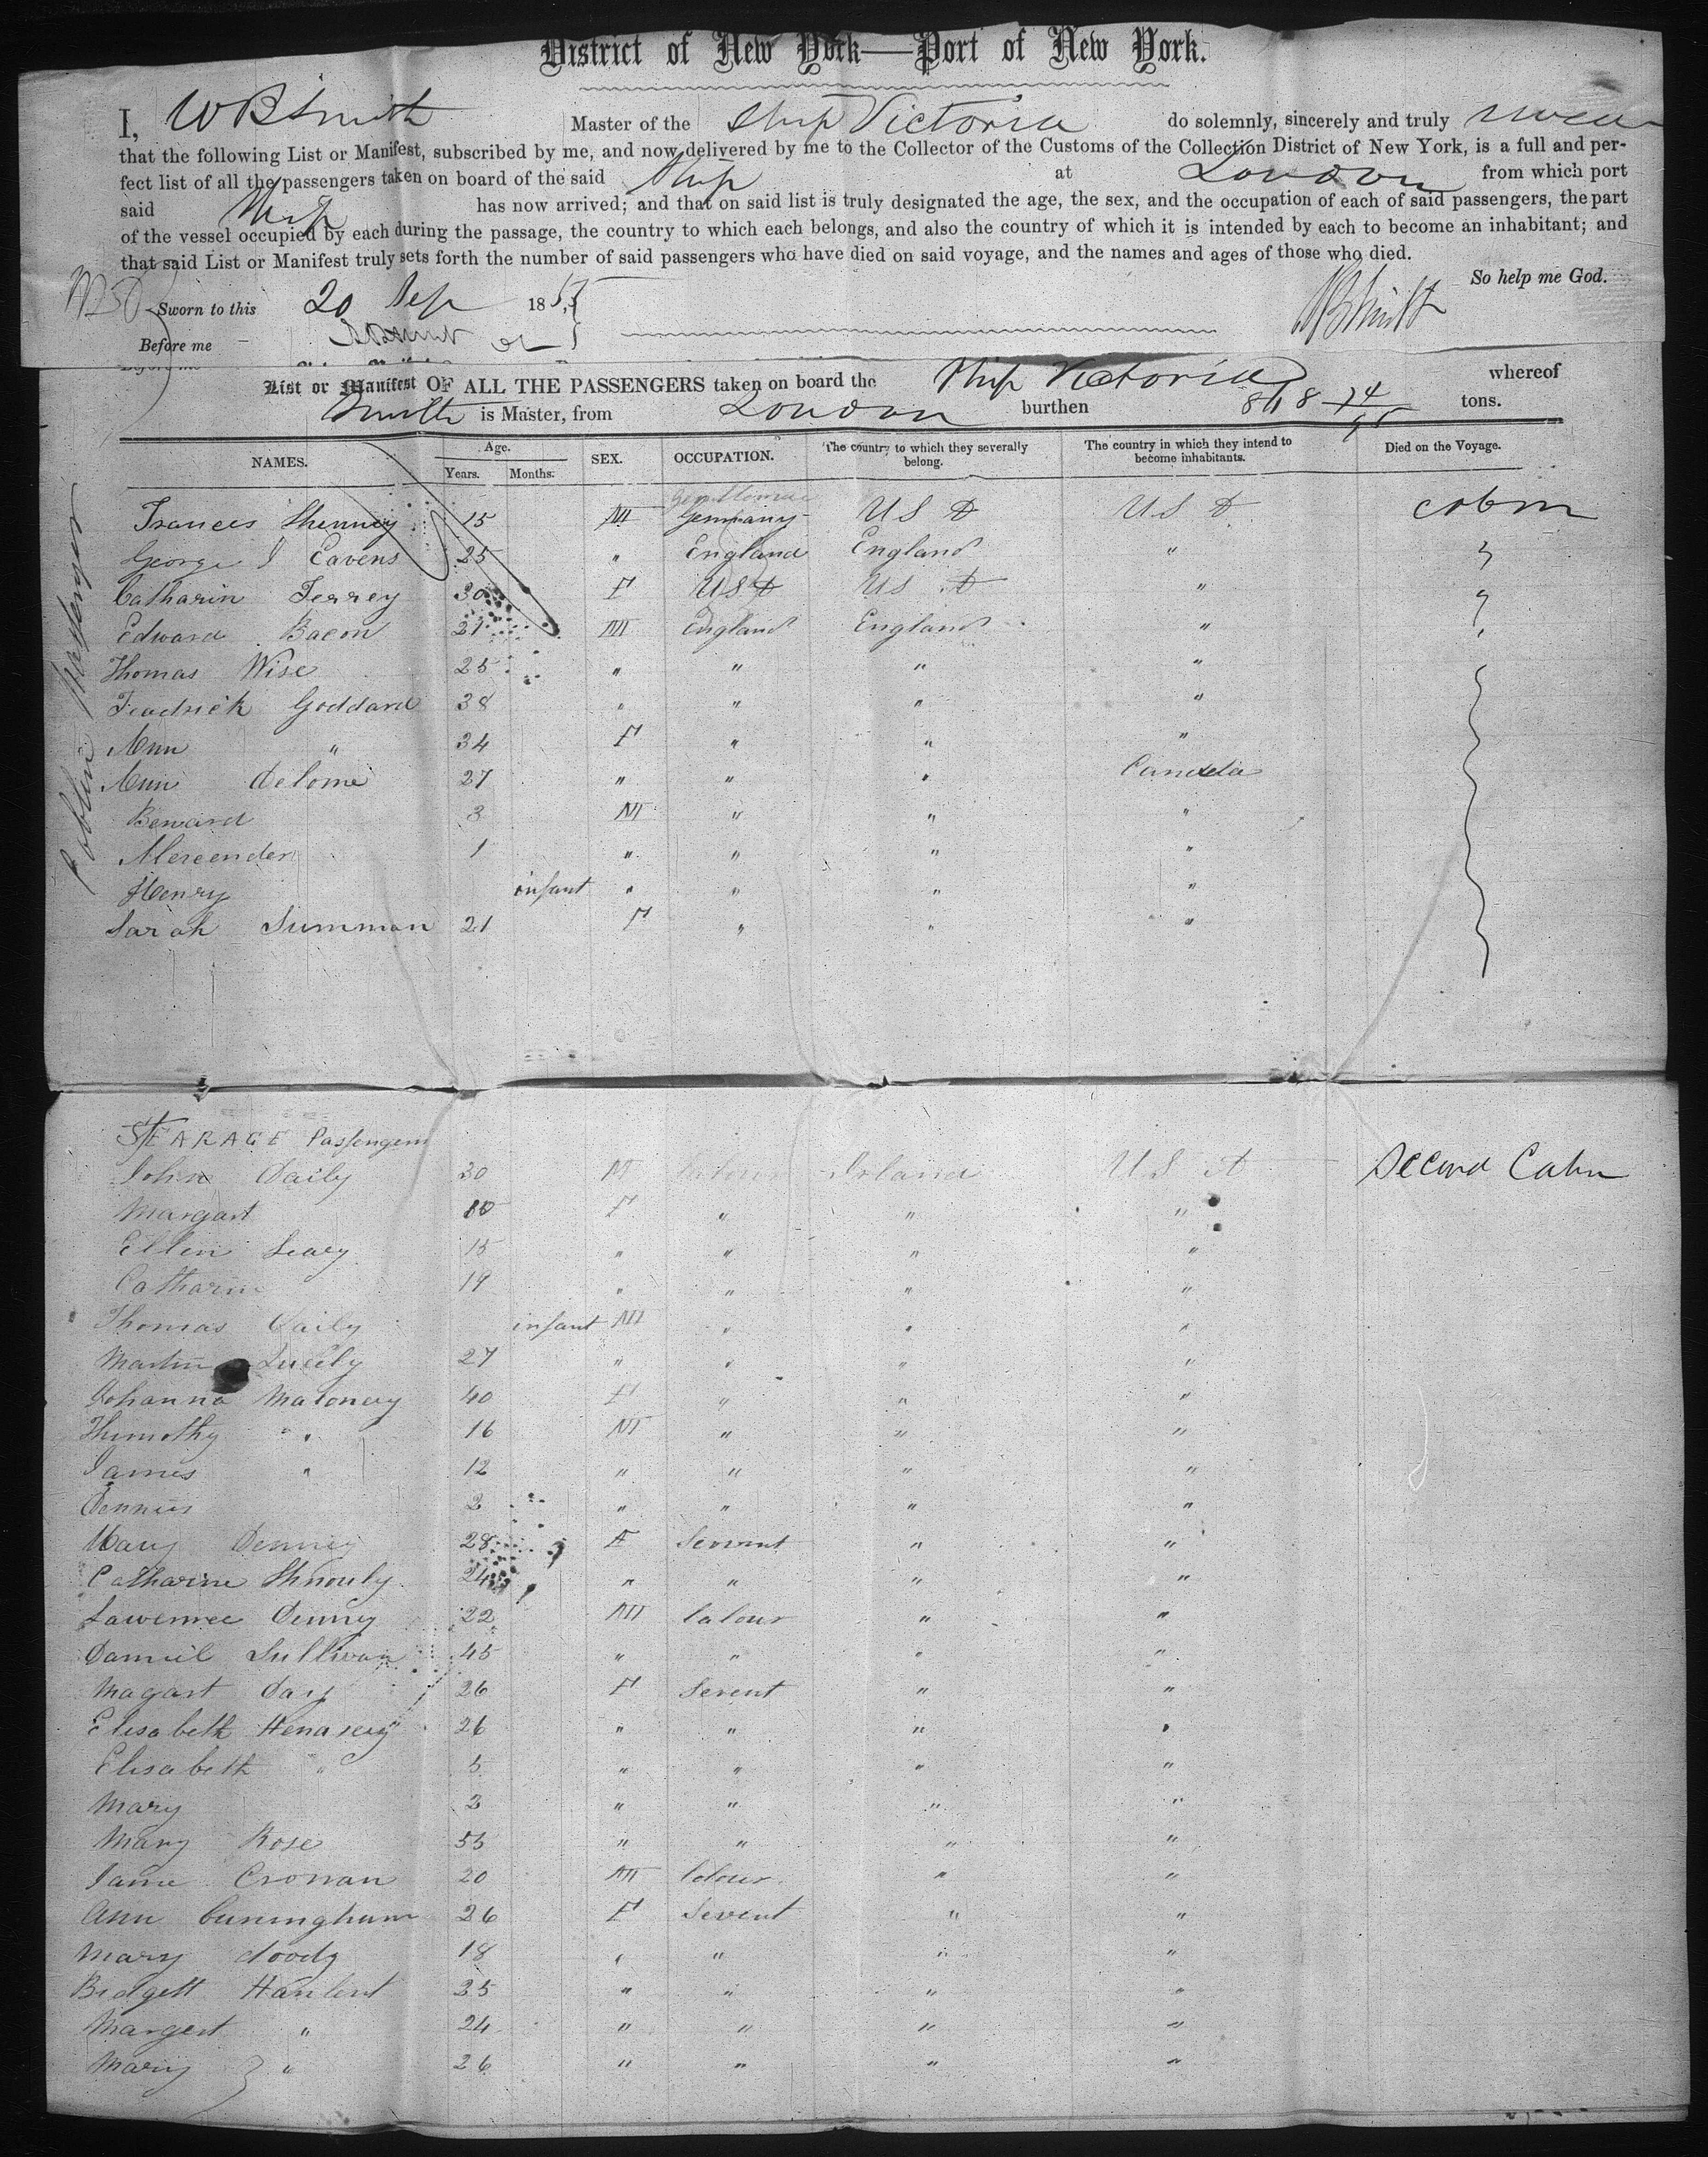 District of New York—Port of New York.
I, W B Smith Master of the Ship Victoria do solemnly, sincerely and truly swear
that the following List or Manifest, subscribed by me, and now delivered by me to the Collector of the Customs of the Collection District of New York, is a full and per-
fect list of all the passengers taken on board of the said Ship at London from which port
said Ship has now arrived; and that on said list is truly designated the age, the sex, and the occupation of each of said passengers, the part
of the vessel occupied by each during the passage, the country to which each belongs, and also the country of which it is intended by each to become an inhabitant; and
that said List or Manifest truly sets forth the number of said passengers who have died on said voyage, and the names and ages of those who died.
So help me God.
Sworn to this 20 Sep 1855 W B Smith
Before me
List or Manifest OF ALL THE PASSENGERS taken on board the Ship Victoria whereof
Smith is Master, from London burthen tons.
NAMES. Age. Years. Months. SEX. OCCUPATION. The country to which they severally belong. The country in which they intend to become inhabitants. Died on the Voyage.
Cabin Passenger
Frances 15 M Gentleman Germany U S A U S A Cabin
George J Eavens 25 " England England "
Catharin Terrey 30 F U S A U S A "
Edward Bacon 21 M England England "
Thomas Wise 25 " " " "
Goddard 38 " " " "
Ann " 34 F " " "
Ann Delome 27 " " " Canada
Benard 3 M " " "
Alexender 1 " " " "
Henry infant " " " "
Sarah Summan 21 F " " "
STEARAGE Passengers
John Daily 30 M labour Irland U S A Second Cabin
Margart 10 F " " "
Ellen Leary 15 " " " "
Catharin 19 " " " "
Thomas Daily infant M " " "
Martin 27 " " " "
Johanna Maloney 40 F " " "
Thimothy " 16 M " " "
James " 12 " " " "
Dennis 2 " " " "
Mary Denney 28 F Servant " "
Catharine 24 " " " "
Lawenree Denny 22 M labour " "
Daniel Sullivan 45 " " " "
Magart Day 26 F Servent " "
Elisabeth 26 " " " "
Elisabeth " 5 " " " "
Mary 2 " " " "
Mary Rose 55 " " " "
Jame Cronan 20 M labour " "
Ann Cuningham 26 F Sevent " "
Mary doody 18 " " " "
Bidgett Hanlent 25 " " " "
Margert " 24 " " " "
Mary " 26 " " " "